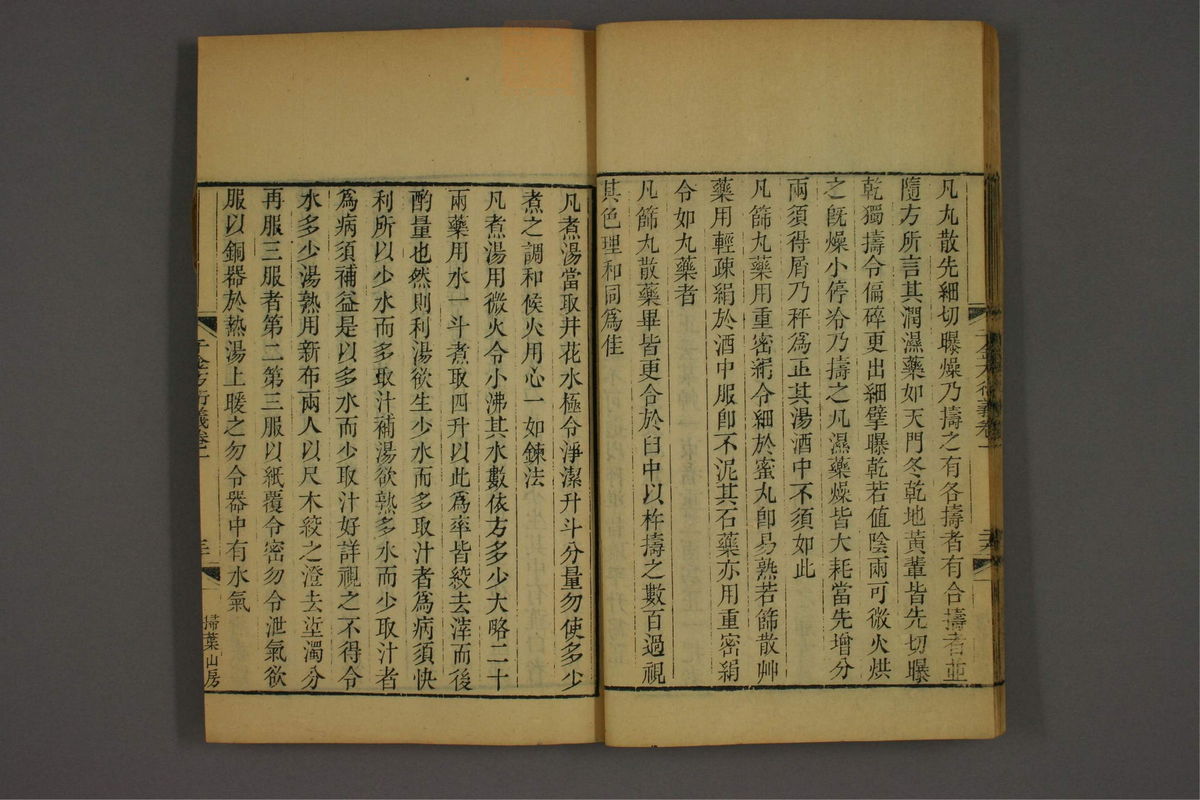 凡丸散先細切曝燥乃擣之有各擣者有合擣者並
隨方所言其潤濕藥如天門冬乾地黃輩皆先切曝
乾獨擣令偏碎更出細擘曝乾若值陰雨可微火烘
之旣燥小停冷乃擣之凡濕藥燥皆大耗當先增分
兩須得屑乃秤爲正其湯酒中不須如此
凡篩丸藥用重密絹令細於蜜丸卽易熟若篩散艸
藥用輕疎絹於酒中服卽不泥其石藥亦用重密絹
令如丸藥者
凡篩丸散藥畢皆更合於臼中以杵擣之數百過視
其色理和同爲佳
凡煮湯當取井花水極令淨潔升斗分量勿使多少
煮之調和候火用心一如鍊法
凡煮湯用微火令小沸其水數依方多少大略二十
兩藥用水一斗煮取四升以此爲率皆絞去滓而後
酌量也然則利湯欲生少水而多取汁者爲病須快
利所以少水而多取汁補湯欲熟多水而少取汁者
爲病須補益是以多水而少取汁好詳視之不得令
水多少湯熟用新布兩人以尺木絞之澄去垽濁分
再服三服者第二第三服以紙覆令密勿令泄氣欲
服以銅器於熱湯上暖之勿令器中有水氣
千金方衍義卷一
掃葉山房